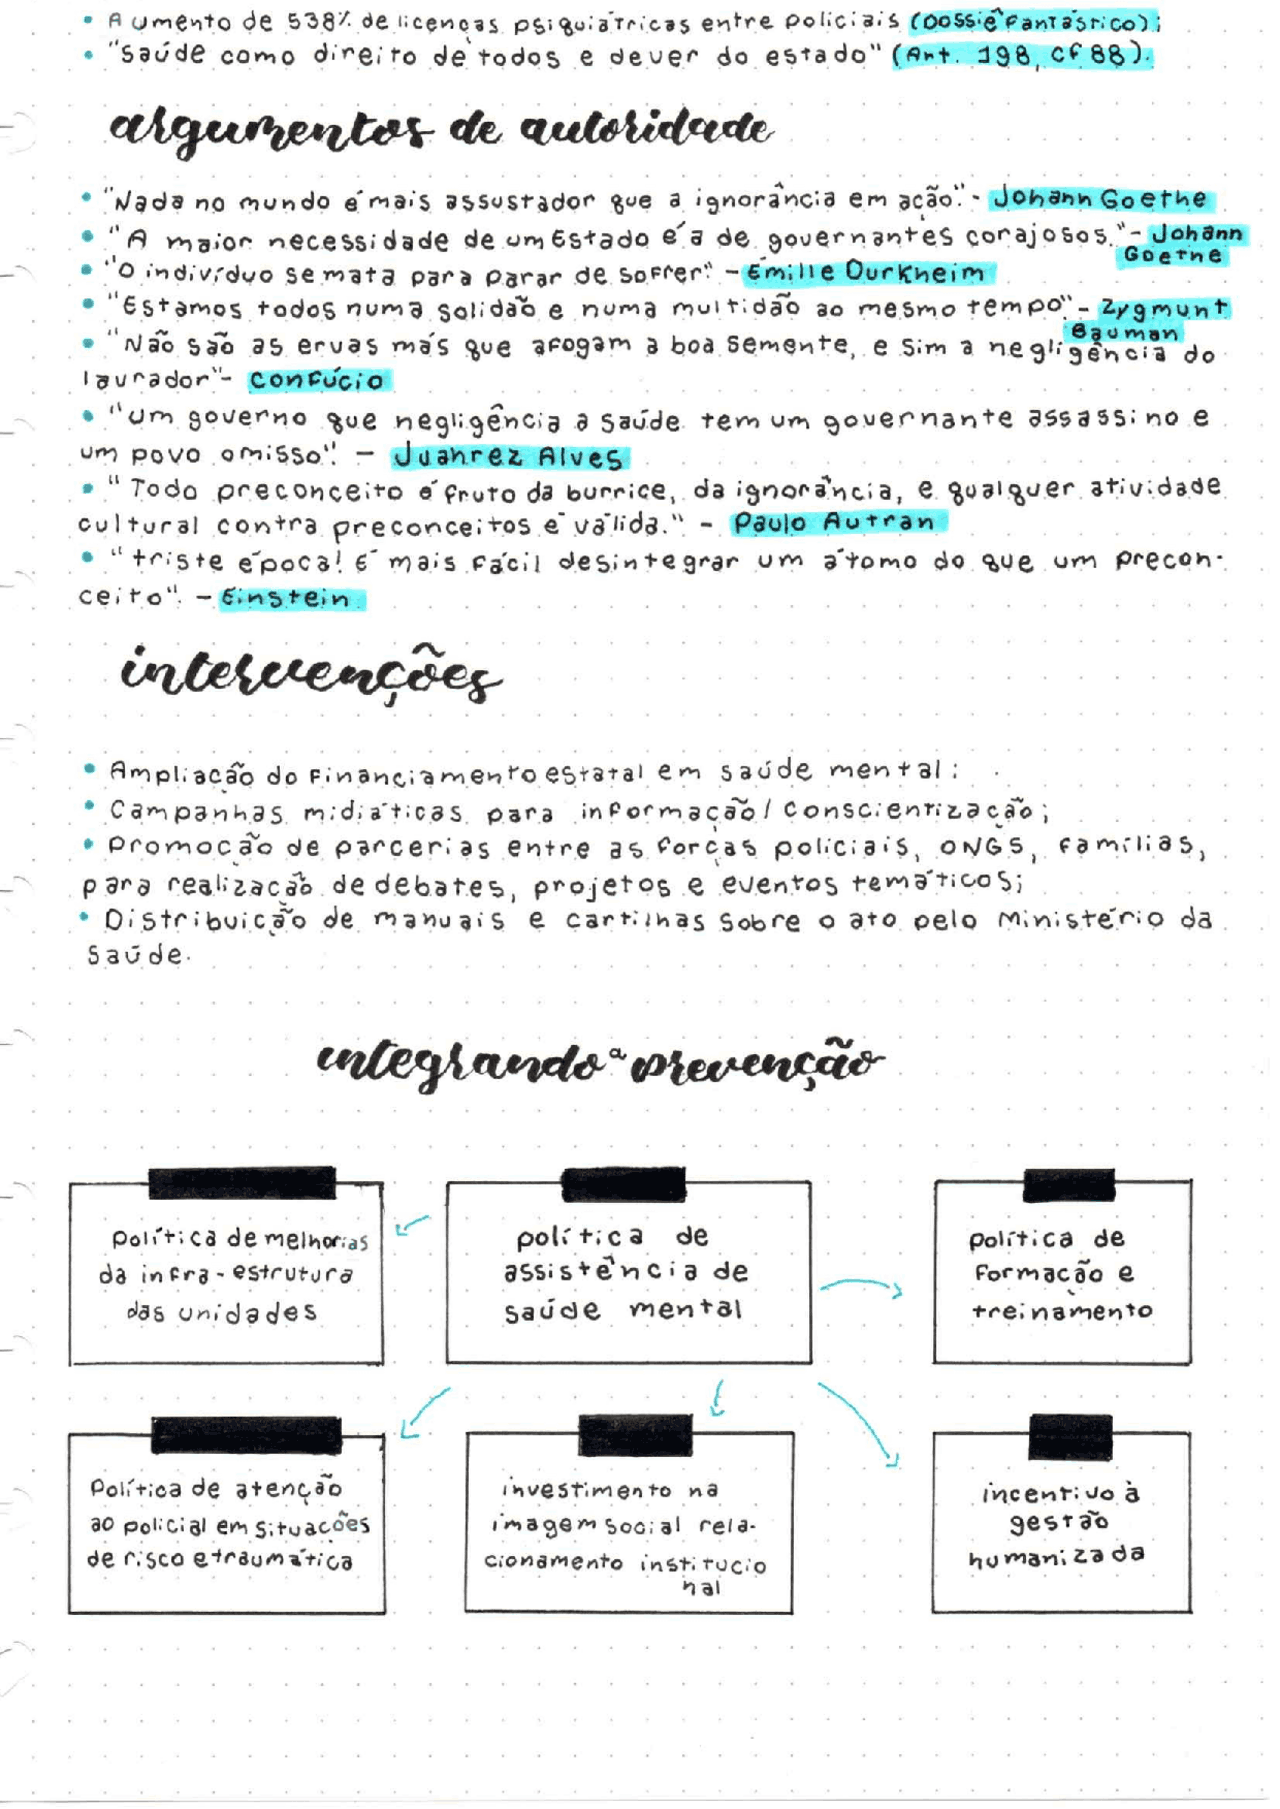 • Aumento de 538% de licenças psiquiátricas entre policiais (Dossiê Fantástico);
• "saúde como direito de todos e dever do estado" (Art. 198, CF 88).
argumentos de autoridade
• "Nada no mundo é mais assustador que a ignorância em ação". - Johann Goethe
• "A maior necessidade de um Estado é a de governantes corajosos." - Johann
Goethe
• "O indivíduo se mata para parar de sofrer". - Émille Durkheim
• "Estamos todos numa solidão e numa multidão ao mesmo tempo" - Zygmunt
Bauman
• "Não são as ervas más que afogam a boa semente, e sim a negligência do
lavrador" - Confúcio
• "um governo que negligência a saúde tem um governante assassino e
um povo omisso". - Juahrez Alves
• "Todo preconceito é fruto da burrice, da ignorância, e qualquer atividade
cultural contra preconceitos é válida." - Paulo Autran
• "triste época! É mais fácil desintegrar um átomo do que um precon-
ceito". - Einstein
intervenções
• Ampliação do financiamento estatal em saúde mental;
• Campanhas midiáticas para informação/conscientização;
• Promoção de parcerias entre as forças policiais, ONGs, famílias,
para realização de debates, projetos e eventos temáticos;
• Distribuição de manuais e cartilhas sobre o ato pelo Ministério da
Saúde.
integrando a prevenção
política de melhorias
da infra-estrutura
das unidades
política de
assistência de
saúde mental
política de
formação e
treinamento
Política de atenção
ao policial em situações
de risco e traumática
investimento na
imagem social rela-
cionamento institucio
nal
incentivo à
gestão
humanizada